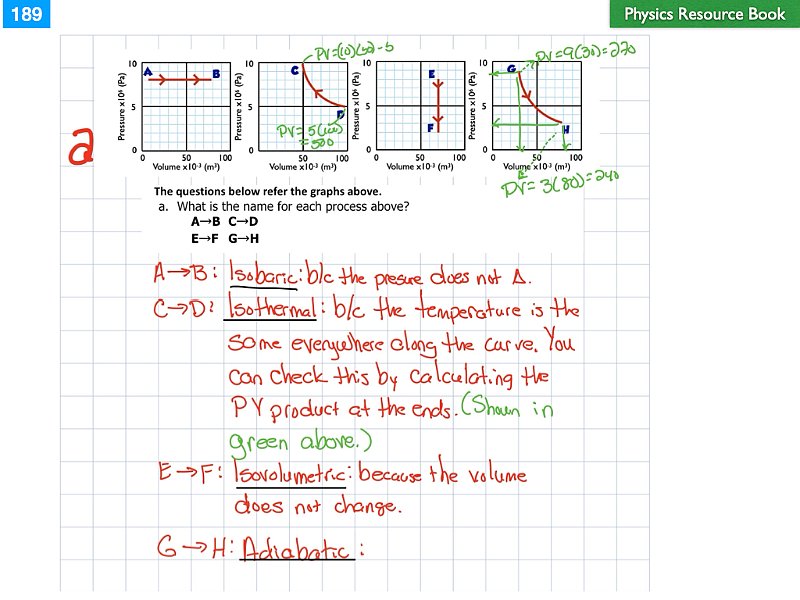 189
Physics Resource Book
PV=(10)(50)=5
PV=9(30)=270
10
5
0
Pressure x10⁶ (Pa)
A
B
0
50
100
Volume x10⁻³ (m³)
10
5
0
Pressure x10⁶ (Pa)
C
D
PV=5(100)
=500
0
50
100
Volume x10⁻³ (m³)
10
5
0
Pressure x10⁶ (Pa)
E
F
0
50
100
Volume x10⁻³ (m³)
10
5
0
Pressure x10⁶ (Pa)
G
H
0
50
100
Volume x10⁻³ (m³)
PV=3(80)=240
a
The questions below refer the graphs above.
a. What is the name for each process above?
A→B C→D
E→F G→H
A→B: Isobaric: b/c the presure does not Δ.
C→D: Isothermal: b/c the temperature is the
same everywhere along the curve. You
can check this by calculating the
PV product at the ends. (Shown in
green above.)
E→F: Isovolumetric: because the volume
does not change.
G→H: Adiabatic: